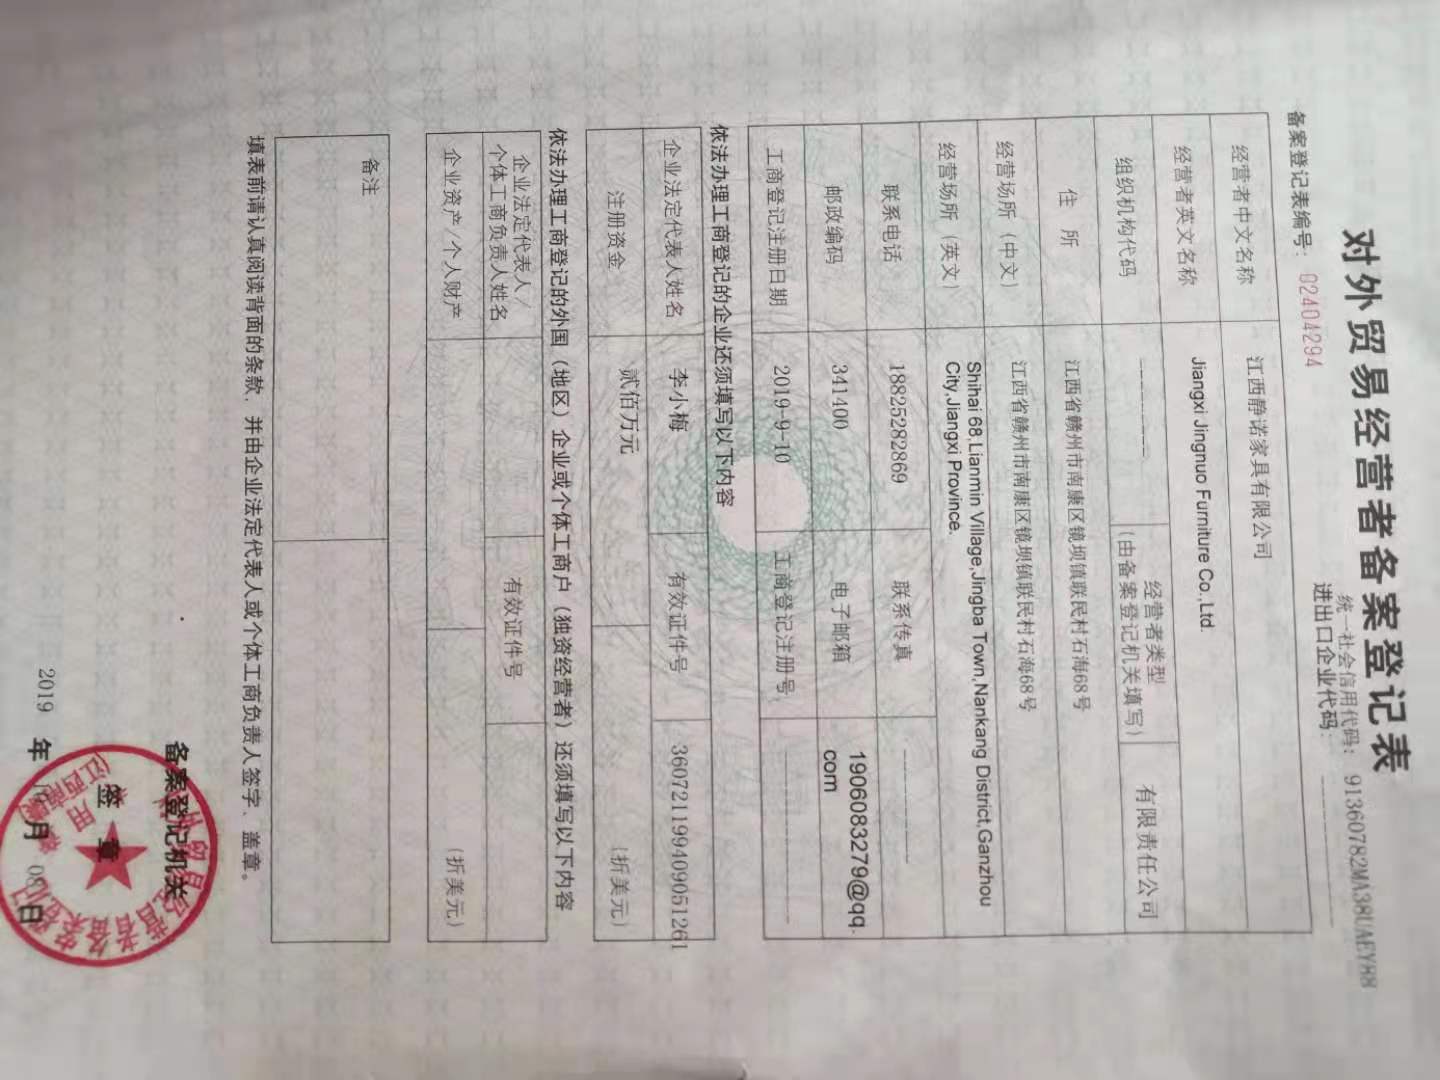 对外贸易经营者备案登记表
统一社会信用代码： 91360782MA38UAEY88
备案登记表编号： 02404294 进出口企业代码： ------------
经营者中文名称 江西静诺家具有限公司
经营者英文名称 Jiangxi Jingnuo Furniture Co.,Ltd.
组织机构代码 -------- 经营者类型 有限责任公司
（由备案登记机关填写）
住 所 江西省赣州市南康区镜坝镇联民村石海68号
经营场所（中文） 江西省赣州市南康区镜坝镇联民村石海68号
经营场所（英文） Shihai 68,Lianmin Village,Jingba Town,Nankang District,Ganzhou
City,Jiangxi Province.
联系电话 18825282869 联系传真 --------
邮政编码 341400 电子邮箱 1906083279@qq.
com
工商登记注册日期 2019-9-10 工商登记注册号 --------
依法办理工商登记的企业还须填写以下内容
企业法定代表人姓名 李小梅 有效证件号 360721199409051261
注册资金 贰佰万元 （折美元）
依法办理工商登记的外国（地区）企业或个体工商户（独资经营者）还须填写以下内容
企业法定代表人/
个体工商负责人姓名 有效证件号
企业资产/个人财产 （折美元）
备注
填表前请认真阅读背面的条款，并由企业法定代表人或个体工商负责人签字、盖章。
备案登记机关
签 章
2019 年 月 08 日